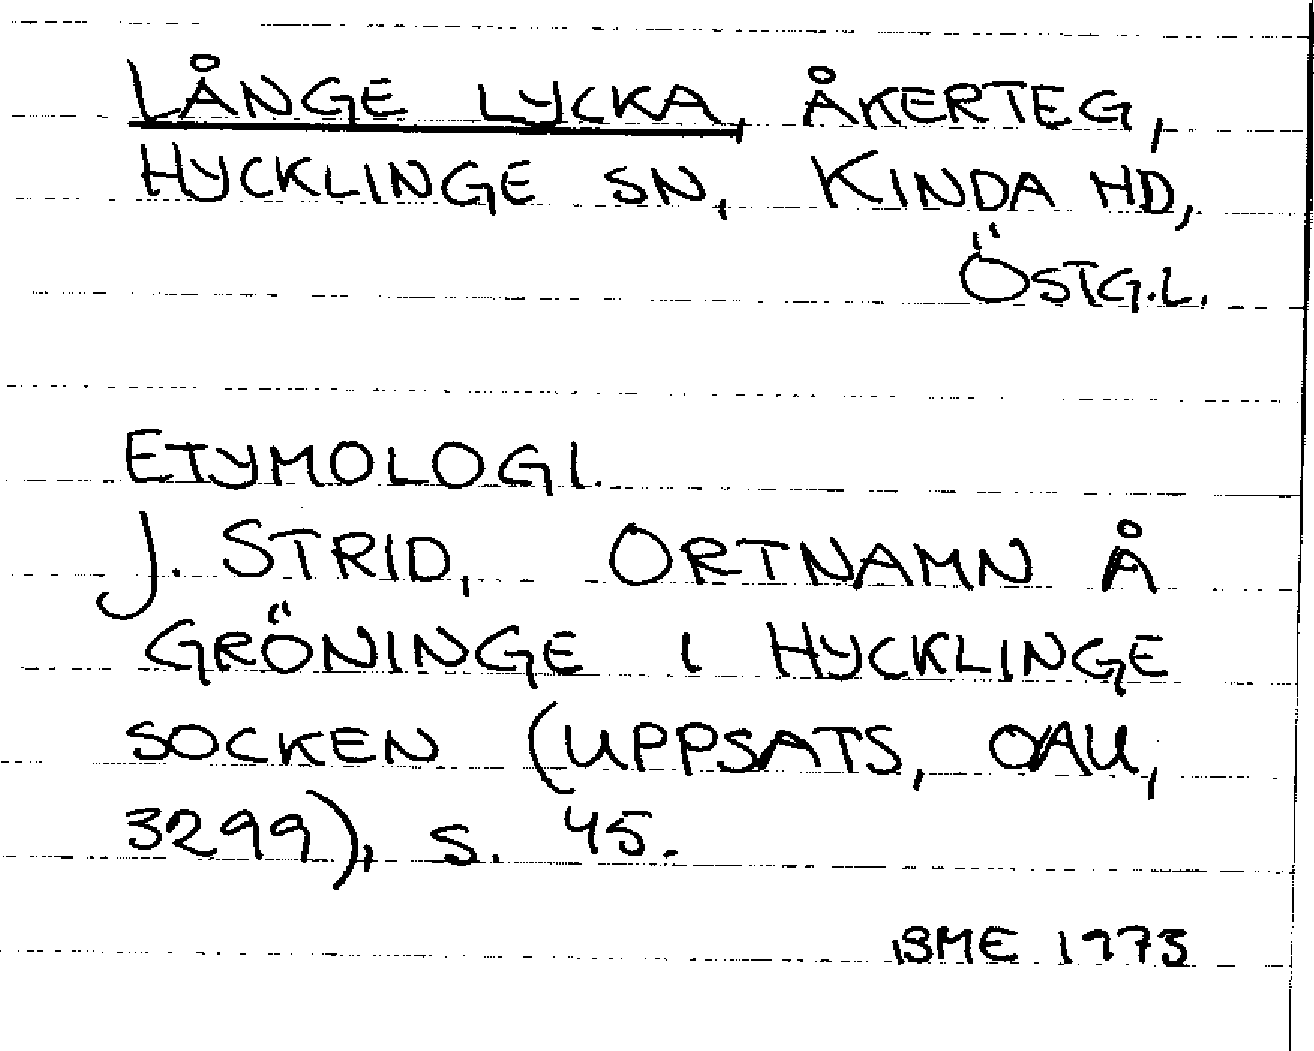 LÅNGE LYCKA, ÅKERTEG,
HYCKLINGE SN, KINDA HD,
ÖSTG.L.
ETYMOLOGI.
J. STRID, ORTNAMN Å
GRÖNINGE I HYCKLINGE
SOCKEN (UPPSATS, OAU,
3299), S. 45.
BME 1973